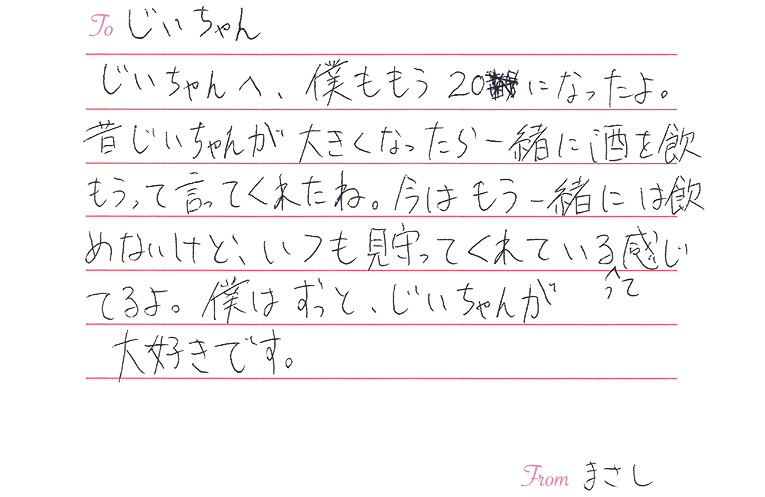 To じいちゃん
じいちゃんへ、僕ももう20になったよ。
昔じいちゃんが大きくなったら一緒に酒を飲
もうって言ってくれたね。今はもう一緒には飲
めないけど、いつも見守ってくれている感じ
って
てるよ。僕はずっと、じいちゃんが
大好きです。
From まさし